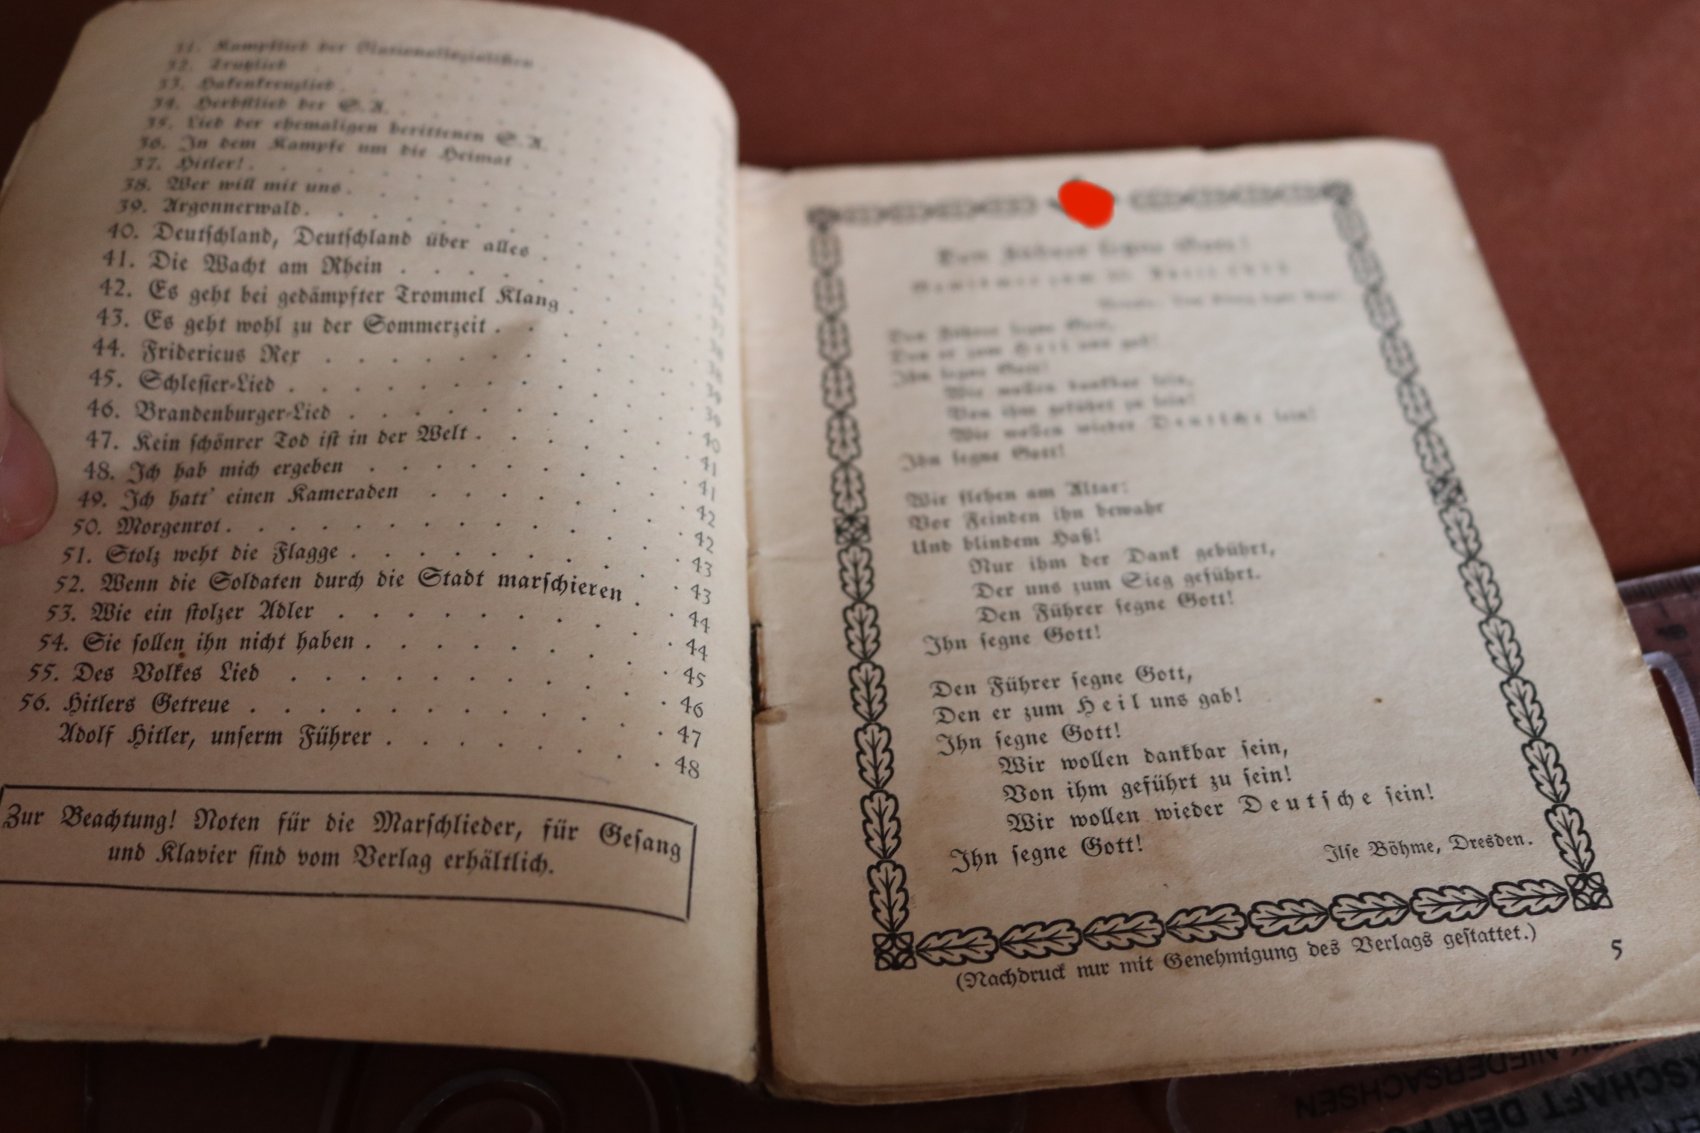 31. Kampflied der Nationalsozialisten
32. Trutzlied
33. Hakenkreuzlied
34. Herbstlied der S. A.
35. Lied der ehemaligen berittenen S. A.
36. In dem Kampfe um die Heimat
37. Hitler!
38. Wer will mit uns
39. Argonnerwald
40. Deutschland, Deutschland über alles
41. Die Wacht am Rhein
42. Es geht bei gedämpfter Trommel Klang
43. Es geht wohl zu der Sommerzeit
44. Fridericus Rex
45. Schlesier-Lied
46. Brandenburger-Lied
47. Kein schönrer Tod ist in der Welt
48. Ich hab mich ergeben
49. Ich hatt' einen Kameraden
50. Morgenrot
51. Stolz weht die Flagge
52. Wenn die Soldaten durch die Stadt marschieren
53. Wie ein stolzer Adler
54. Sie sollen ihn nicht haben
55. Des Volkes Lied
56. Hitlers Getreue
Adolf Hitler, unserm Führer
39
39
40
41
41
42
42
43
43
44
44
45
46
47
48
Zur Beachtung! Noten für die Marschlieder, für Gesang
und Klavier sind vom Verlag erhältlich.
Den Führer segne Gott!
Den Führer segne Gott,
Den er zum Heil uns gab!
Ihn segne Gott!
Wir wollen dankbar sein,
Von ihm geführt zu sein!
Wir wollen wieder Deutsche sein!
Ihn segne Gott!
Wir flehen am Altar:
Vor Feinden ihn bewahr
Und blindem Haß!
Nur ihm der Dank gebührt,
Der uns zum Sieg geführt.
Den Führer segne Gott!
Ihn segne Gott!
Den Führer segne Gott,
Den er zum Heil uns gab!
Ihn segne Gott!
Wir wollen dankbar sein,
Von ihm geführt zu sein!
Wir wollen wieder Deutsche sein!
Ihn segne Gott!
Ilse Böhme, Dresden.
(Nachdruck nur mit Genehmigung des Verlags gestattet.)
5
NIEDERSACHSEN
SCHAFT DER